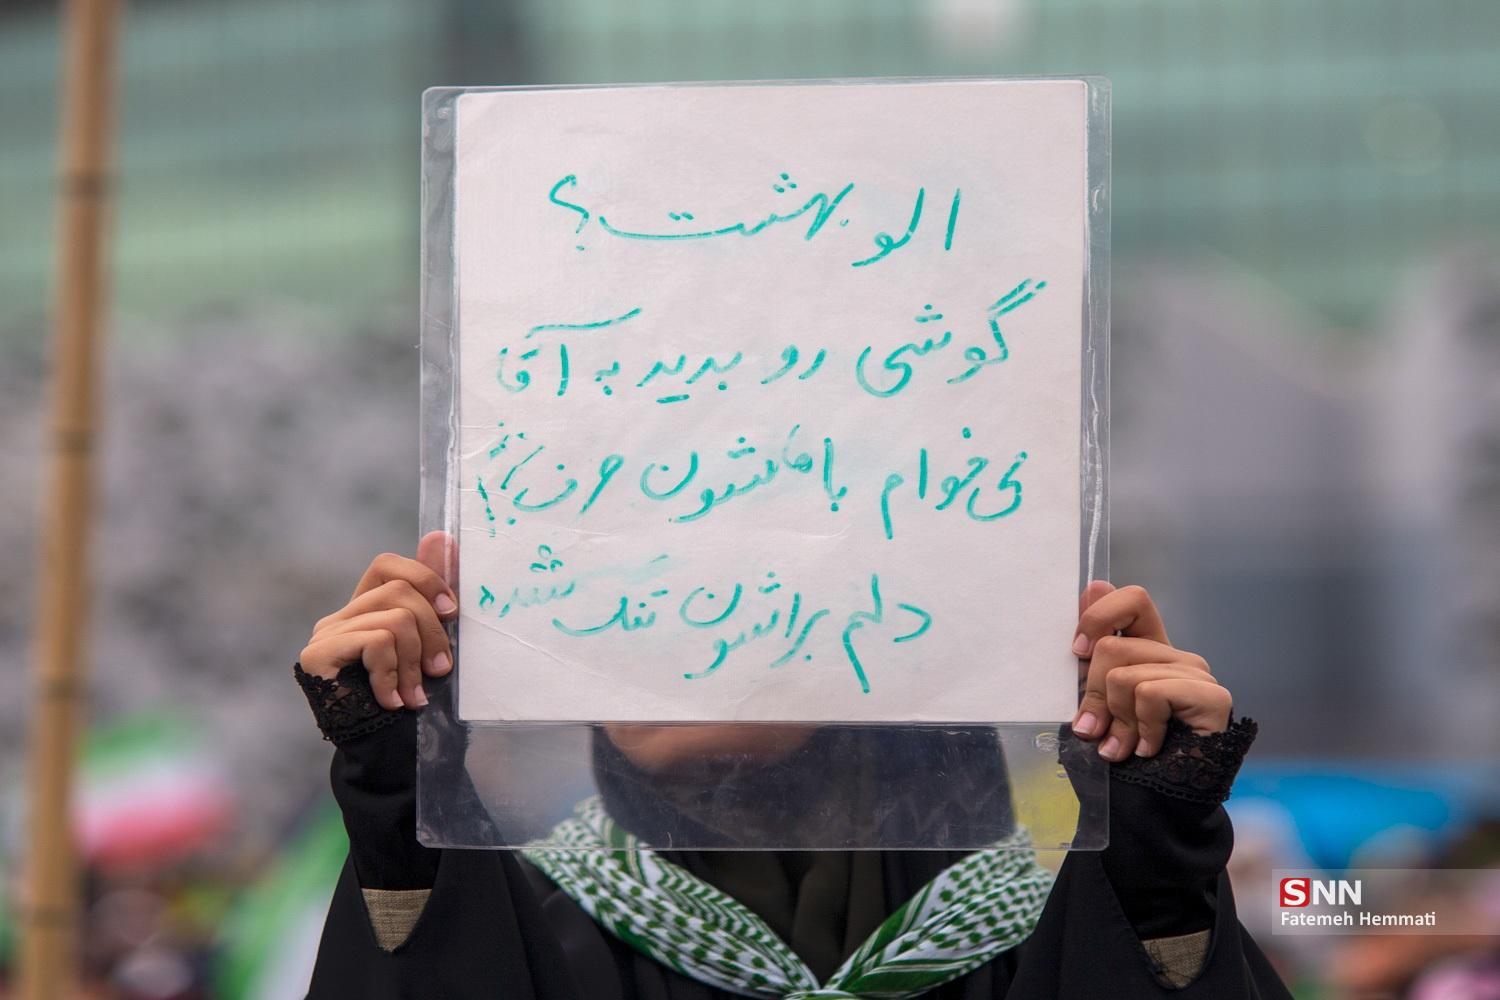 الو بهشت؟
گوشی رو بدید به آقا
می خوام باهاشون حرف بزنم
دلم براشون تنگ شده
SNN
Fatemeh Hemmati